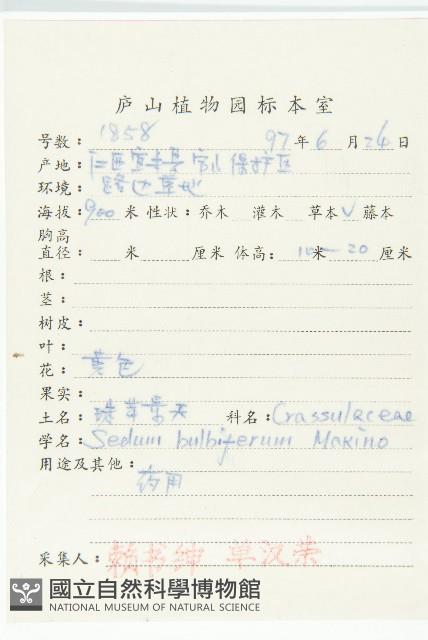 庐山植物园标本室
号数：1858 97年6月26日
产地：江西宜丰县官山保护区
环境：路边草地
海拔：900米 性状：乔木 灌木 草本√藤本
胸高
直径： 米 厘米 体高： 10米—20厘米
根：
茎：
树皮：
叶：
花：黄色
果实：
土名：珠芽景天 科名：Crassulaceae
学名：Sedum bulbiferum Makino
用途及其他：
药用
采集人：赖书绅 单汉荣
國立自然科學博物館
NATIONAL MUSEUM OF NATURAL SCIENCE